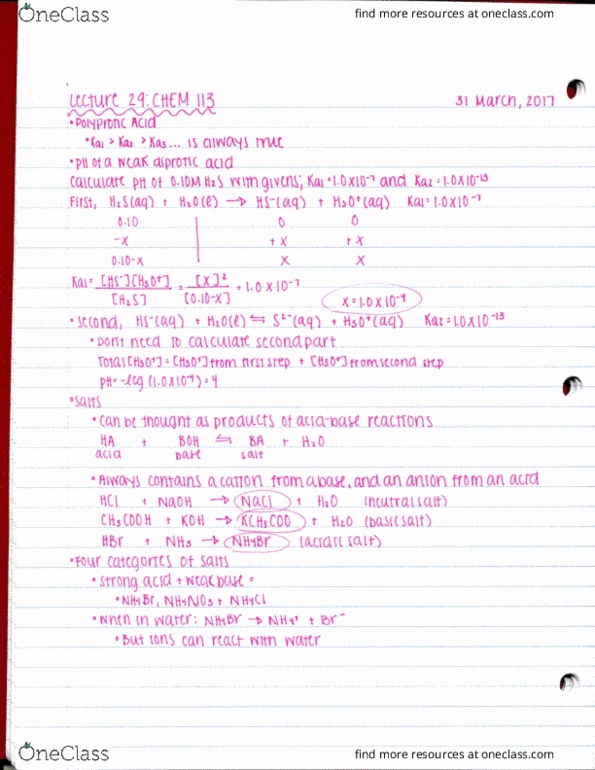 OneClass
find more resources at oneclass.com
Lecture 29: CHEM 113
31 March, 2017
• Polyprotic Acid
• Ka1 > Ka2 > Ka3... is always true
• pH of a weak diprotic acid
Calculate pH of 0.10M H2S with givens; Ka1 = 1.0 x 10^-7 and Ka2 = 1.0 x 10^-13
First, H2S(aq) + H2O(l) → HS-(aq) + H3O+(aq) Ka1 = 1.0 x 10^-7
0.10 0 0
-x +x +x
0.10-x x x
Ka1 = [HS-][H3O+] / [H2S] = [x]^2 / [0.10-x] = 1.0 x 10^-7
x = 1.0 x 10^-4
• Second, HS-(aq) + H2O(l) ⇋ S2-(aq) + H3O+(aq) Ka2 = 1.0 x 10^-13
• Don't need to calculate second part
Total [H3O+] = [H3O+] from first step + [H3O+] from second step
pH = -log (1.0x10^-4) = 4
• Salts
• Can be thought as products of acid-base reactions
HA + BOH ⇋ BA + H2O
acid base salt
• Always contains a cation from a base, and an anion from an acid
HCl + NaOH → NaCl + H2O (neutral salt)
CH3COOH + KOH → KCH3COO + H2O (basic salt)
HBr + NH3 → NH4Br (acidic salt)
• Four categories of salts
• Strong acid + weak base •
• NH4Br, NH4NO3 + NH4Cl
• When in water: NH4Br → NH4+ + Br-
• But ions can react with water
OneClass
find more resources at oneclass.com